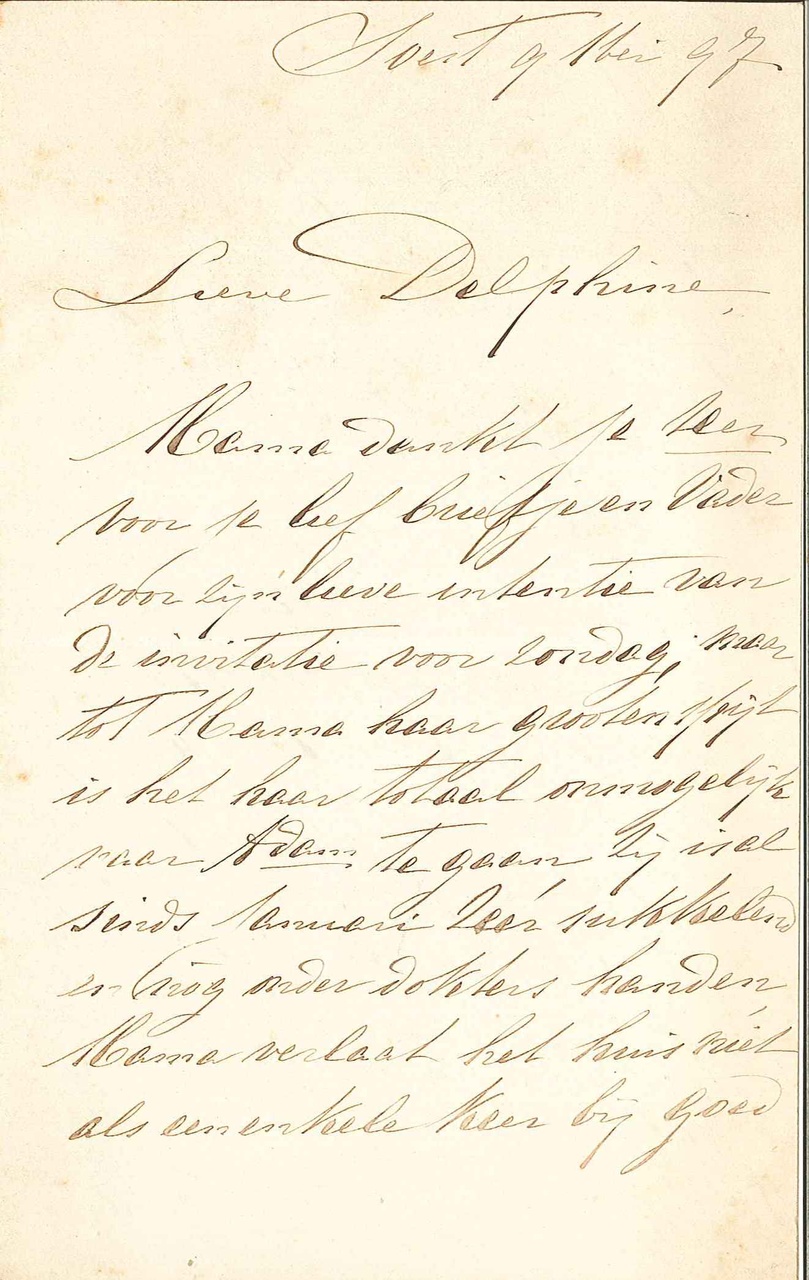 Soest 9 Mei 97
Lieve Delphine,
Mama dankt je zeer
voor je lief briefje en Vader
voor zijn lieve intentie van
de invitatie voor zondag, maar
tot Mama haar grooten spijt
is het haar totaal onmogelijk
naar Adam te gaan zij is al
sinds Januari zéér sukkelend
en nog onder dokters handen,
Mama verlaat het huis niet
als een enkele keer bij goed